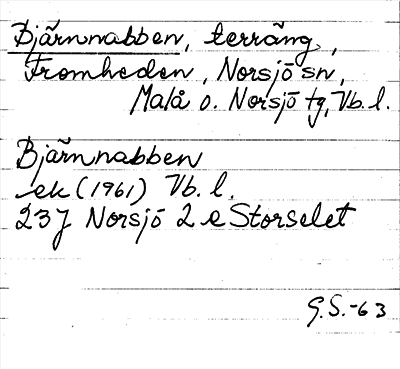 Bjärnnabben, terräng,
Fromheden, Norsjö sn,
Malå o. Norsjö tg, Vb. l.
Bjärnnabben
ek (1961) Vb. l.
23J Norsjö 2 e Storselet
G.S.-63